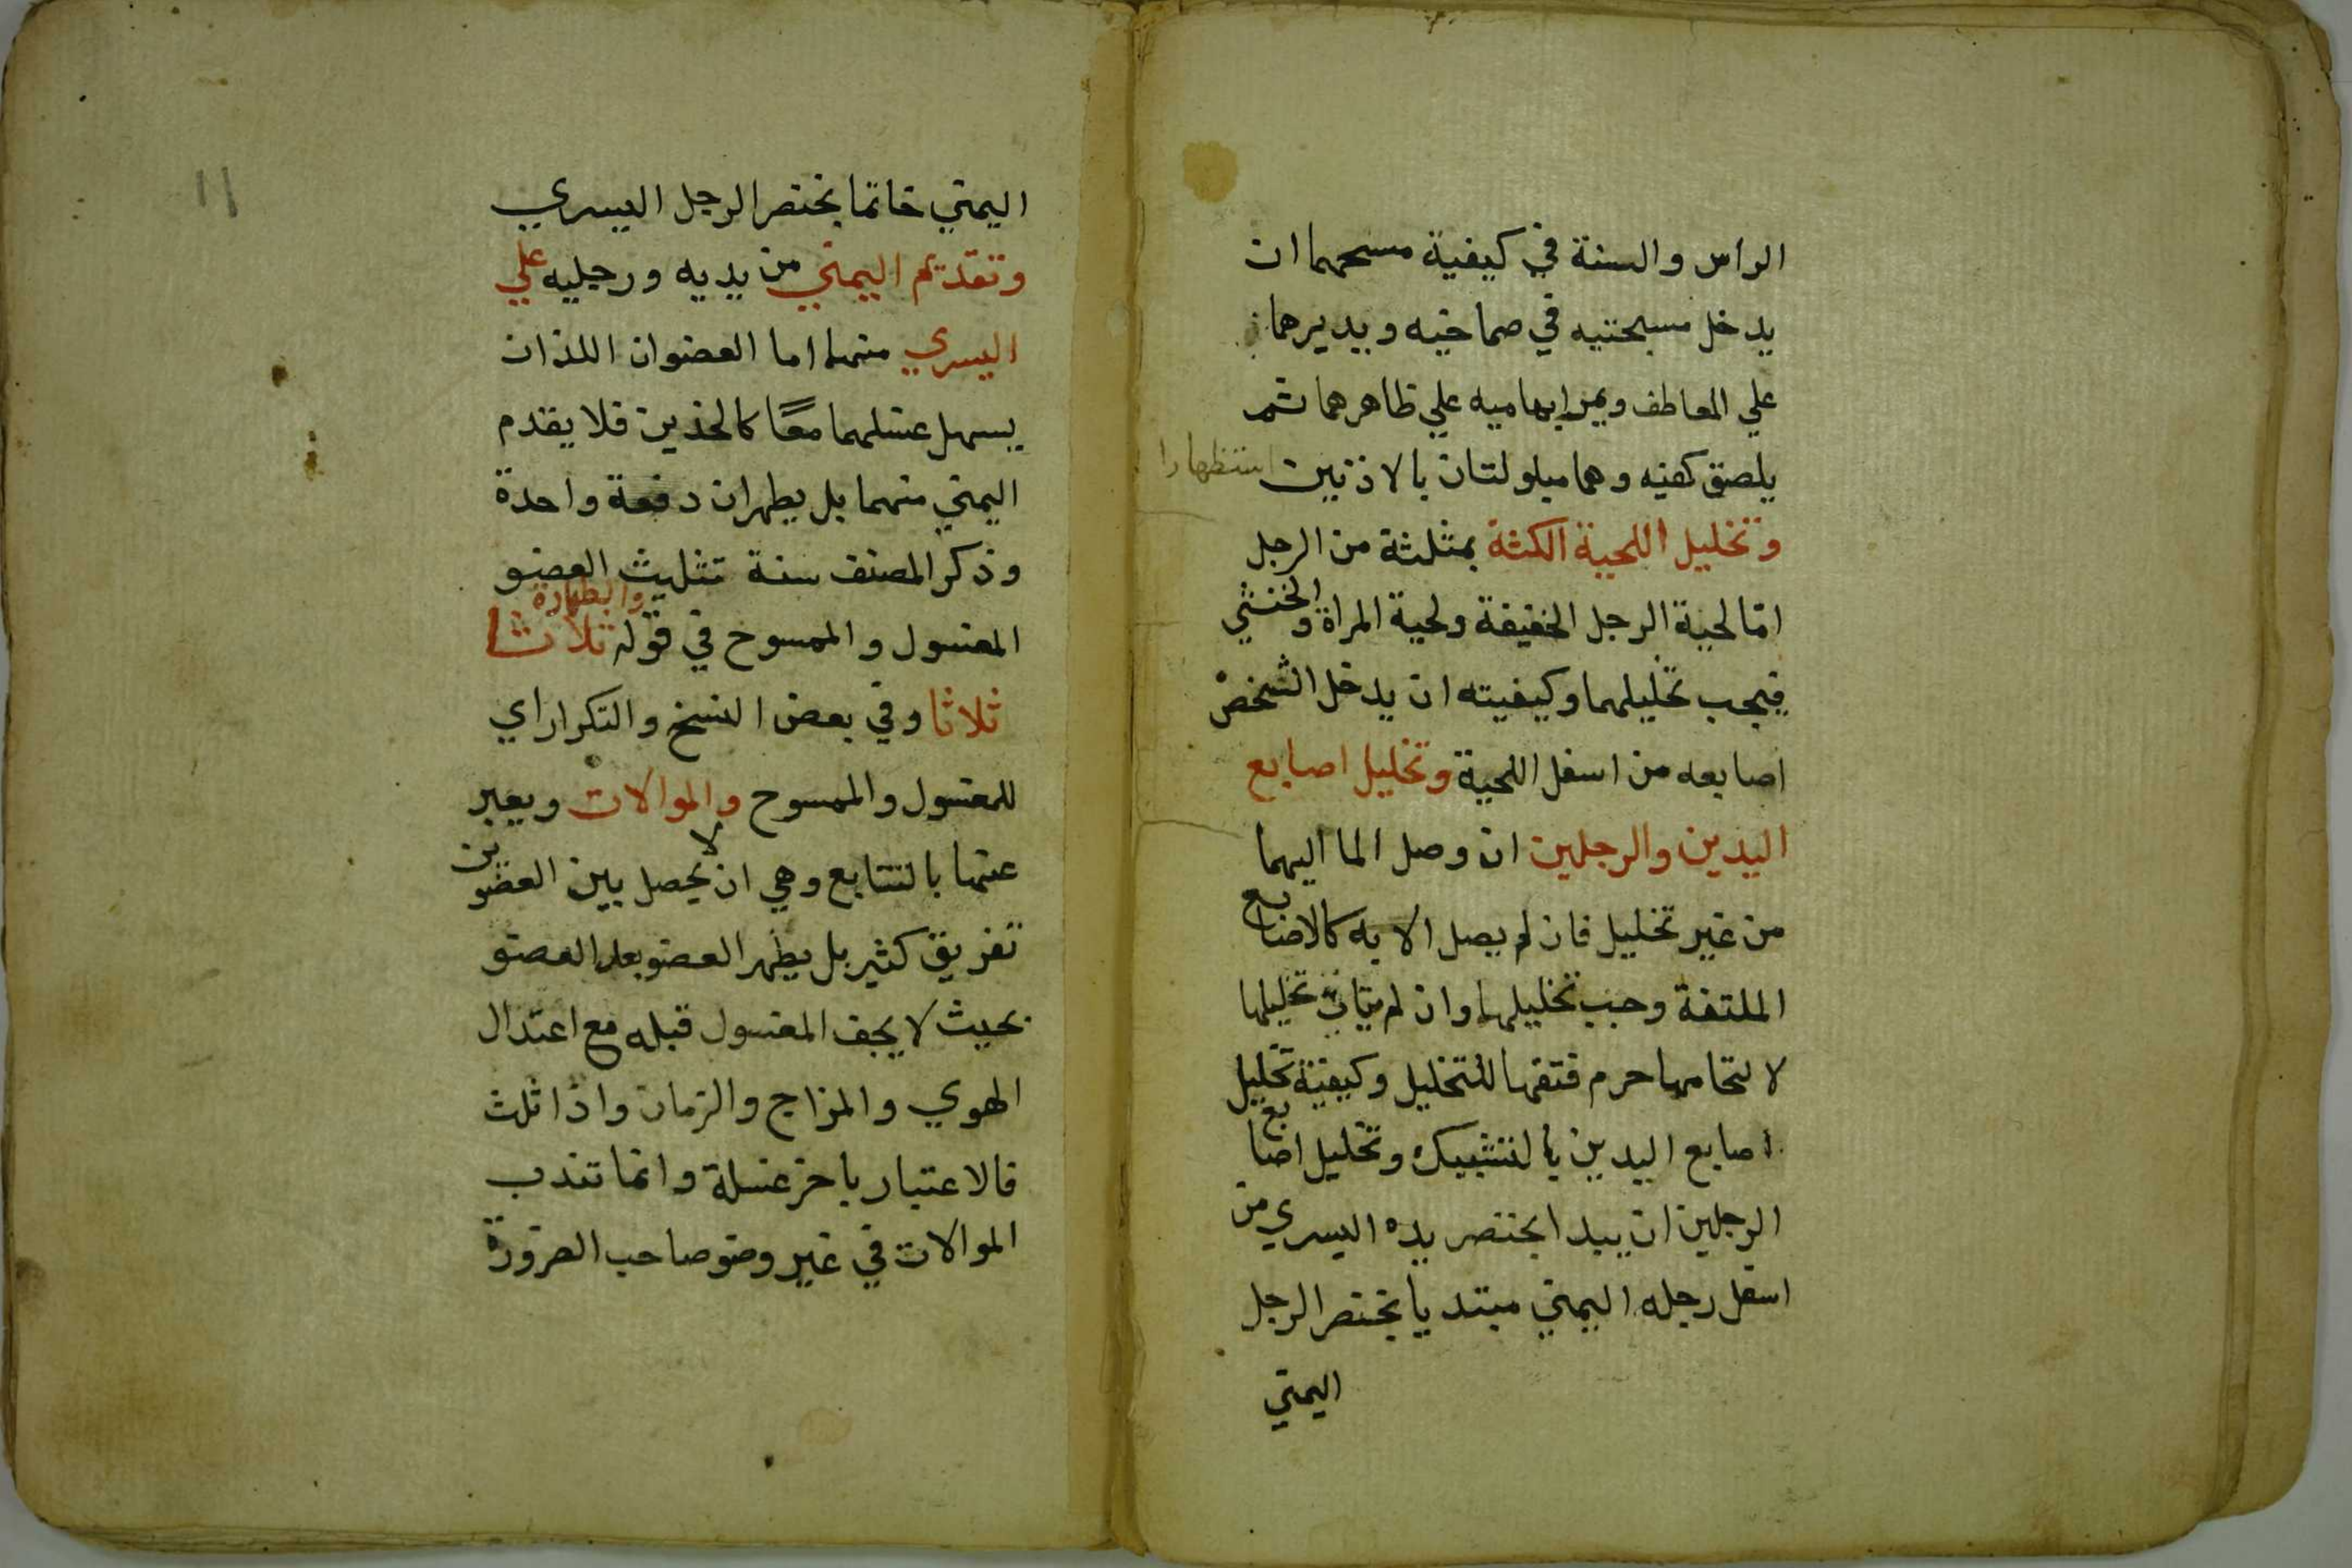 الراس والسنة في كيفية مسحهما ان
يدخل مسبحتيه في صماخيه ويديرهما
علي المعاطف ويمر ابهاميه علي ظاهرهما ثم
يلصق كفيه وهما مبلولتان بالاذنين استظهارا
وتخليل اللحية الكثة بمثلثة من الرجل
امّا لحية الرجل الخفيفة ولحية المراة والخنثي
فيجب تخليلهما وكيفيته ان يدخل الشخص
اصابعه من اسفل اللحية وتخليل اصابع
اليدين والرجلين ان وصل الما اليهما
من غير تخليل فان لم يصل الا به كالاصابع
الملتفة وجب تخليلها وان لم يتات تخليلها
لالتحامها حرم فتقها للتخليل وكيفية تخليل
اصابع اليدين بالتشبيك وتخليل اصابع
الرجلين ان يبدا بخنصر يده اليسري من
اسفل رجله اليمني مبتديا بخنصر الرجل
اليمني
١١
اليمني خاتما بخنصر الرجل اليسري
وتقديم اليمني من يديه ورجليه علي
اليسري منهما اما العضوان اللذان
يسهل غسلهما معًا كالخدين فلا يقدم
اليمني منهما بل يطهران دفعة واحدة
وذكر المصنف سنة تثليث العضو
المغسول والممسوح في قوله والطهارة ثلاثا
ثلاثا وفي بعض النسخ والتكرار اي
للمغسول والممسوح والموالات ويعبر
عنها بالتتابع وهي ان لا يحصل بين العضوين
تفريق كثير بل يطهر العضو بعد العضو
بحيث لا يجف المغسول قبله مع اعتدال
الهوي والمزاج والزمان واذا ثلث
فالاعتبار باخر غسلة وانما تندب
الموالات في غير وضو صاحب الضرورة